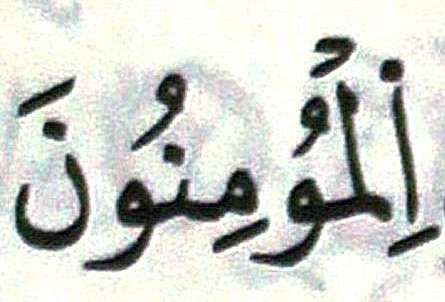 اِ۬لْمُومِنُونَ